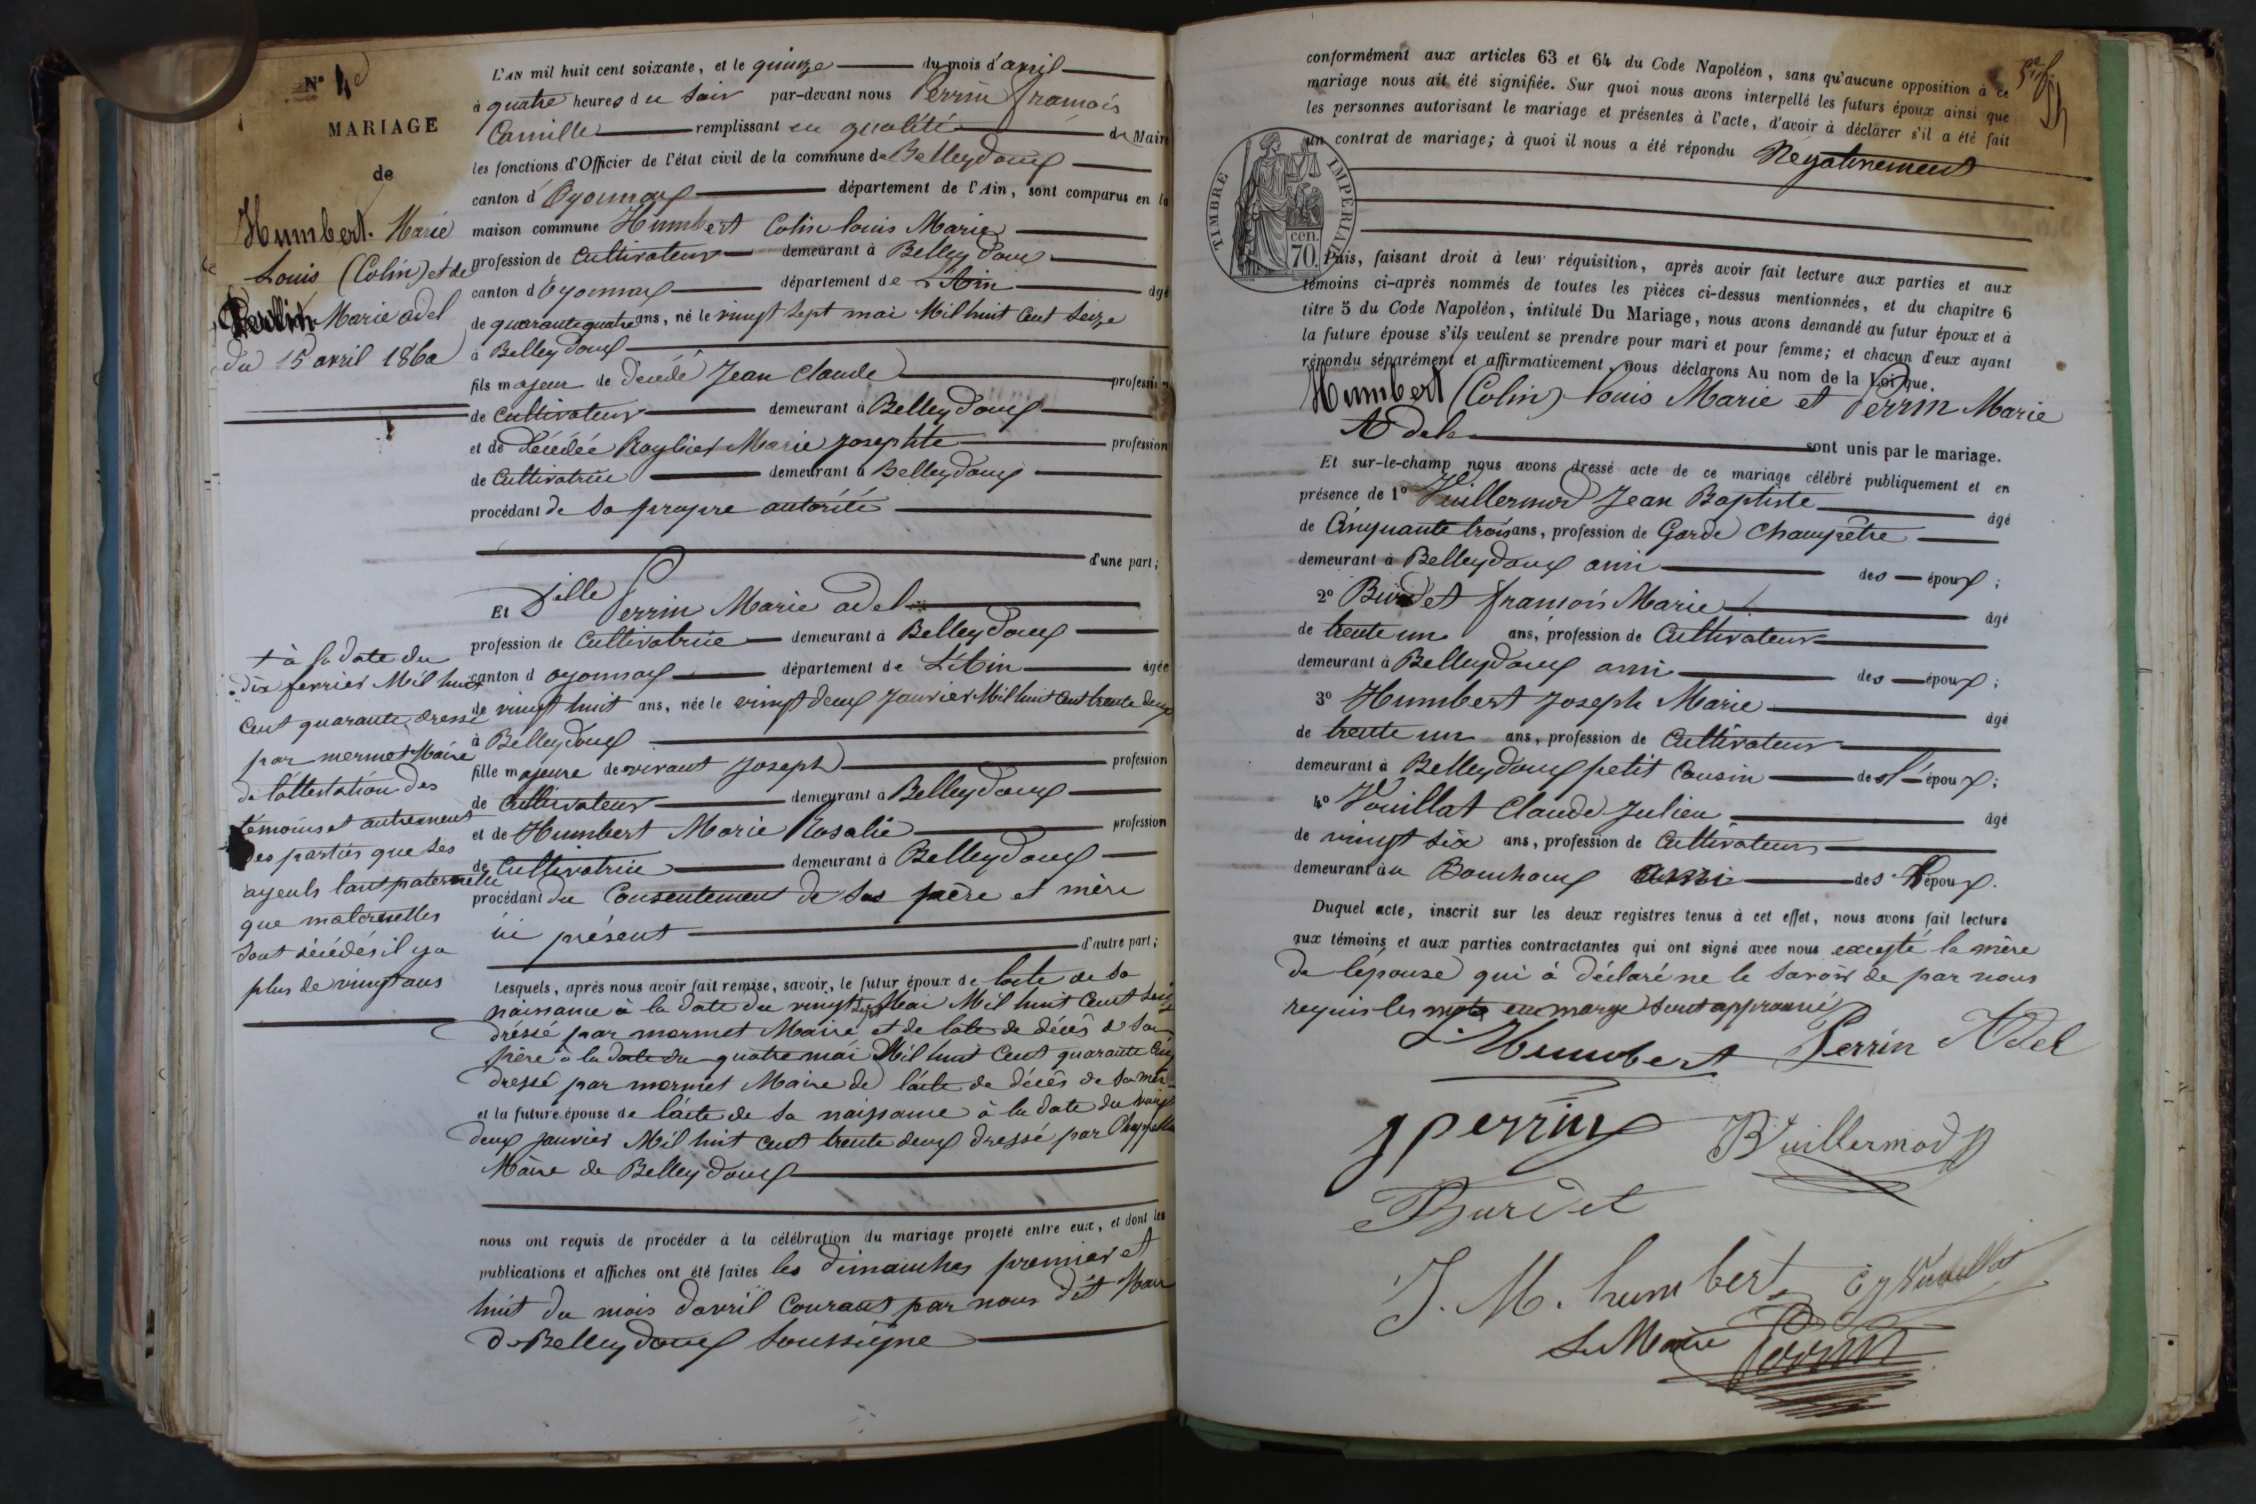 N° 4e
MARIAGE
de
Humbert. Marie
Louis (Colin) et de
Perrin Marie adel
du 15 avril 1860
L'AN mil huit cent soixante, et le quinze du mois d'avril
à quatre heures du soir par-devant nous Perrin françois
Camille remplissant en qualité de Maire
les fonctions d'Officier de l'état civil de la commune de Belleydoux
canton d'Oyonnax département de l'Ain, sont comparus en la
maison commune Humbert Colin louis Marie
profession de Cultivateur demeurant à Belleydoux
canton d'Oyonnax département de L'Ain âgé
de quarante quatre ans, né le vingt sept mai Mil huit Cent Seize
à Belleydoux
fils majeur de décédé Jean Claude profession
de Cultivateur demeurant à Belleydoux
et de décédée Marie Josephte profession
de Cultivatrice demeurant à Belleydoux
procédant de sa propre autorité
d'une part;
Et Dlle Perrin Marie adel
profession de Cultivatrice demeurant à Belleydoux
canton d'oyonnax département de L'Ain âgée
de vingt huit ans, née le vingt deux Janvier Mil huit Cent trente deux
à Belleydoux
fille majeure de vivant Joseph profession
de Cultivateur demeurant à Belleydoux
et de Humbert Marie Rosalie profession
de Cultivatrice demeurant à Belleydoux
procédant du Consentement de ses père et mère
ici présent
d'autre part;
+ à la date du
dix fevrier Mil huit
Cent quarante dressé
par mermet Maire
de l'attestation des
témoins et autrement
des parties que ses
ayeuls tant paternelle
que maternelles
sont décédés il y a
plus de vingt ans
Lesquels, après nous avoir fait remise, savoir, le futur époux de l'acte de sa
naissance à la date du vingt sept Mai Mil huit Cent Seize
dréssé par mermet Maire et de l'acte de décès de son
père à la date du quatre mai Mil huit Cent quarante cinq
dressé par mermet Maire de l'acte de décès de sa mère
et la future épouse de l'acte de sa naissance à la date du vingt
deux janvier Mil huit cent trente deux dressé par
Maire de Belleydoux
nous ont requis de procéder à la célébration du mariage projeté entre eux, et dont les
publications et affiches ont été faites les dimanches premier et
huit du mois d'avril Courant par nous dit Maire
de Belleydoux Soussigné
conformément aux articles 63 et 64 du Code Napoléon, sans qu'aucune opposition à ce
mariage nous ait été signifiée. Sur quoi nous avons interpellé les futurs époux ainsi que
les personnes autorisant le mariage et présentes à l'acte, d'avoir à déclarer s'il a été fait
un contrat de mariage; à quoi il nous a été répondu Négativement
TIMBRE IMPÉRIAL
70 cen.
Puis, faisant droit à leur réquisition, après avoir fait lecture aux parties et aux
témoins ci-après nommés de toutes les pièces ci-dessus mentionnées, et du chapitre 6
titre 5 du Code Napoléon, intitulé Du Mariage, nous avons demandé au futur époux et à
la future épouse s'ils veulent se prendre pour mari et pour femme; et chacun d'eux ayant
répondu séparément et affirmativement, nous déclarons Au nom de la Loi que,
Humbert (Colin) louis Marie et Perrin Marie
Adele sont unis par le mariage.
Et sur-le-champ nous avons dressé acte de ce mariage célébré publiquement et en
présence de 1° Vuillermod Jean Baptiste âgé
de Cinquante trois ans, profession de Garde Champêtre
demeurant à Belleydoux ami des époux;
2° Burdet françois Marie âgé
de trente un ans, profession de Cultivateur
demeurant à Belleydoux ami des époux;
3° Humbert Joseph Marie âgé
de trente un ans, profession de Cultivateur
demeurant à Belleydoux petit Cousin de l'époux;
4° Vouillat Claude Julien âgé
de vingt six ans, profession de Cultivateur
demeurant au Bouchoux ami des époux.
Duquel acte, inscrit sur les deux registres tenus à cet effet, nous avons fait lecture
aux témoins et aux parties contractantes qui ont signé avec nous excepté la mère
de l'épouse qui à déclaré ne le savoir de par nous
requis les mots en marge sont approuvés
L. Humbert Perrin Adel
J perrin
B Vuillermod
Burdet
J. M. humbert
Le Maire
Perrin